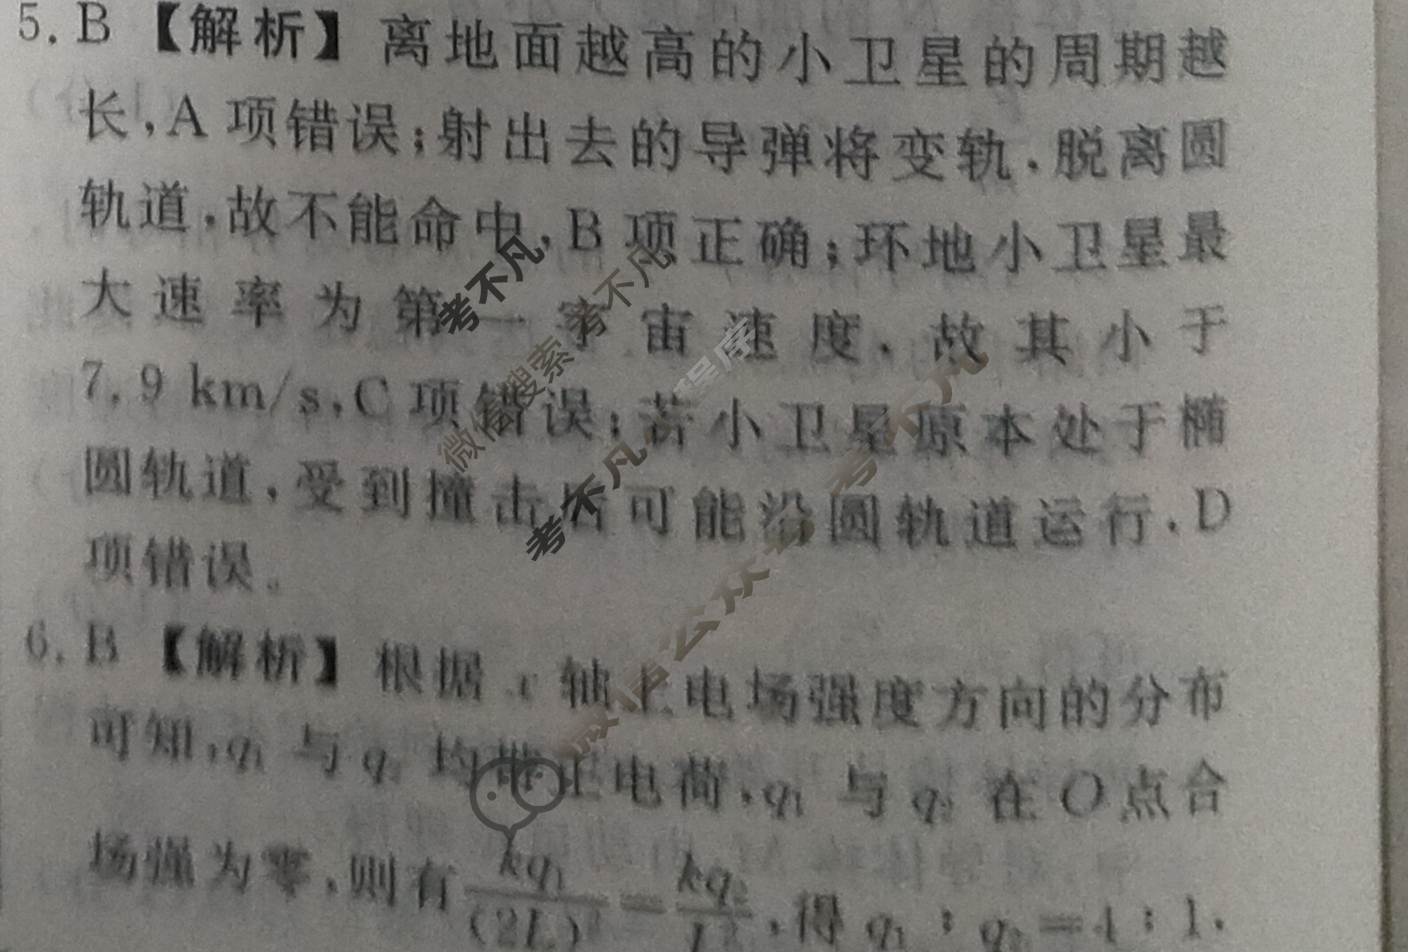 5. B 【解析】离地面越高的小卫星的周期越
长,A 项错误;射出去的导弹将变轨,脱离圆
轨道,故不能命中,B 项正确;环地小卫星最
大速率为第一宇宙速度,故其小于
7.9 km/s,C 项错误;若小卫星原本处于椭
圆轨道,受到撞击后可能沿圆轨道运行,D
项错误。
6. B 【解析】根据 x 轴上电场强度方向的分布
可知,q₁ 与 q₂ 均带正电荷,q₁ 与 q₂ 在 O 点合
场强为零,则有 kq₁/(2L)² = kq₂/L²,得 q₁:q₂=4:1,
考不凡
考不凡
微信搜索
小程序
考不凡
考不凡
微信公众号